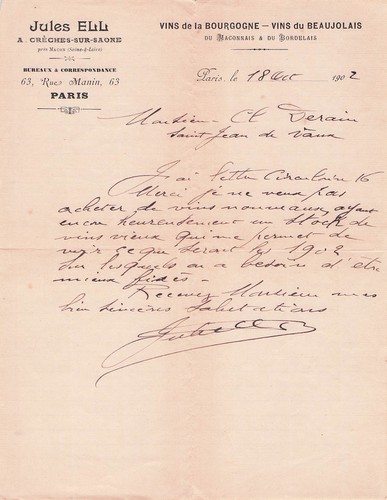 Jules ELL
A CRÊCHES-SUR-SAONE
près MACON (Saône-&-Loire)
BUREAUX & CORRESPONDANCE
63, Rue Manin, 63
PARIS
VINS de la BOURGOGNE — VINS du BEAUJOLAIS
DU MACONNAIS & DU BORDELAIS
Paris, le 18 Oct 1902
Monsieur Derain
Saint Jean de Vaux
J'ai lettre Circulaire 16
Merci je ne veux pas
acheter de vins nouveaux, ayant
encore heureusement un stock de
vins vieux qui me permet de
voir ce que seront les 1902
sur lesquels on a besoin d'être
mieux fixés -
Recevez Monsieur mes
bien sincères salutations